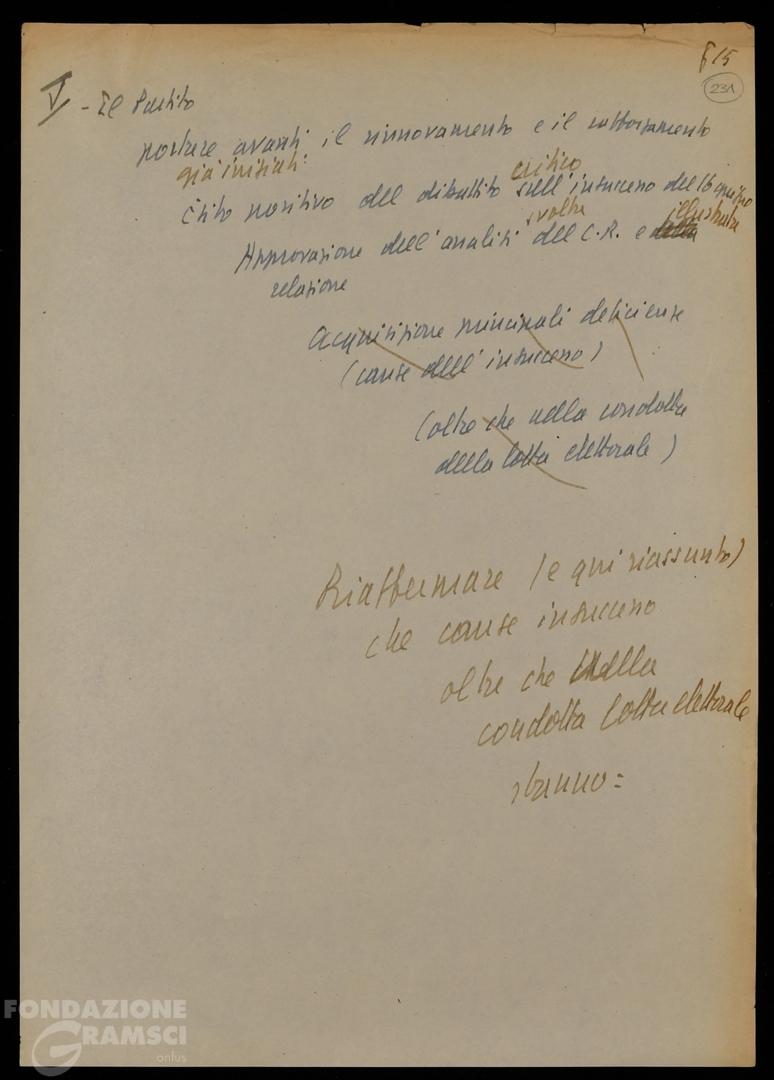 615
231
V - Il Partito
portare avanti il rinnovamento e il rafforzamento
già iniziati:
critico
Esito positivo del dibattito sull'insuccesso del 16 giugno
svolta
illustrata
Approvazione dell'analisi del C.R. e della
relazione
Acquisizione principali deficienze
(cause dell'insuccesso)
(oltre che nella condotta
della lotta elettorale)
Riaffermare (e qui riassunto)
che cause insuccesso
oltre che nella
condotta lotta elettorale
stanno:
FONDAZIONE
GRAMSCI
onlus